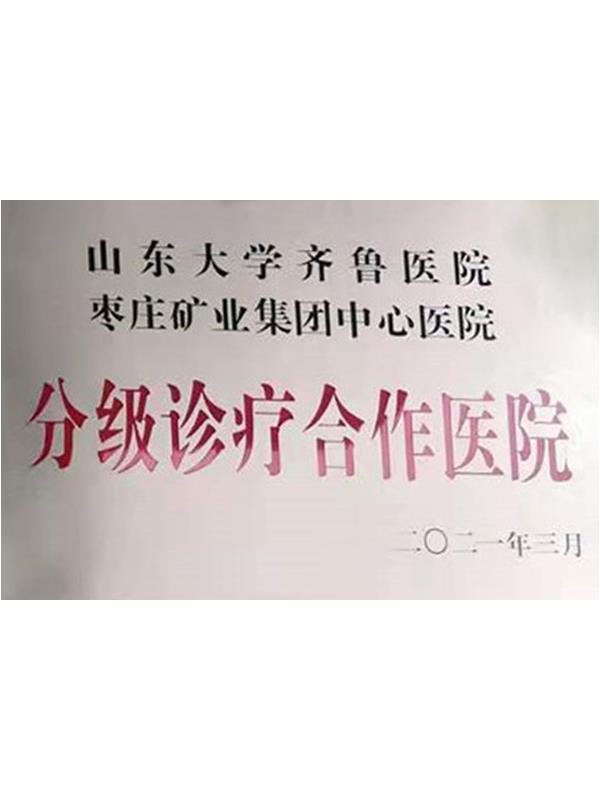 山东大学齐鲁医院
枣庄矿业集团中心医院
分级诊疗合作医院
二〇二一年三月